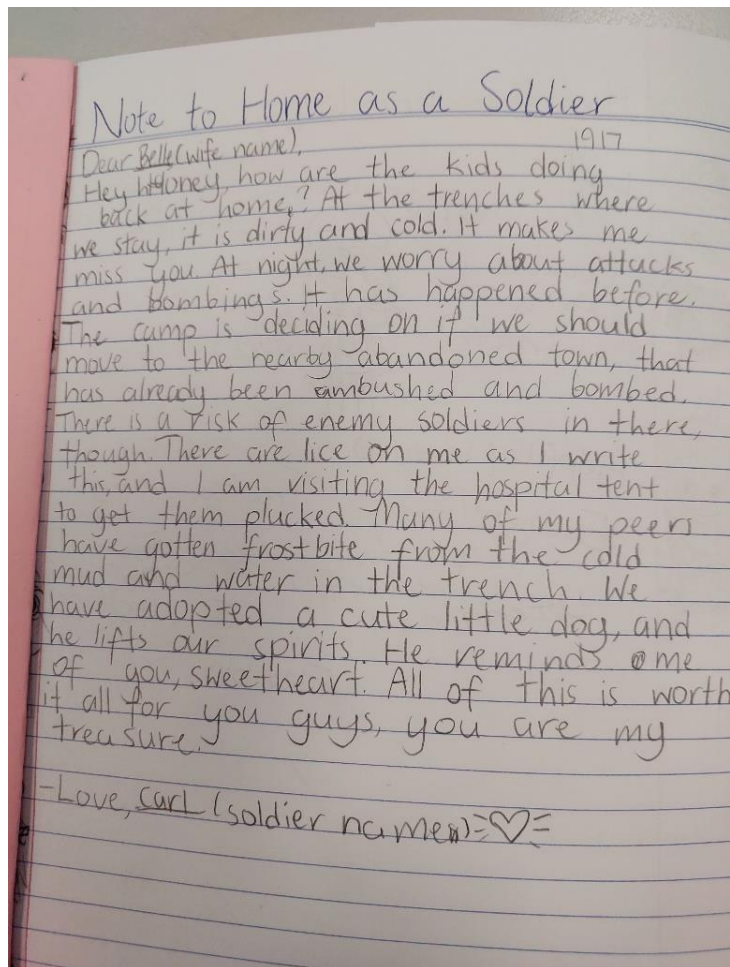 Note to Home as a Soldier
1917
Dear Belle (wife name),
Hey Honey, how are the kids doing
back at home,? At the trenches where
we stay, it is dirty and cold. It makes me
miss you. At night, we worry about attacks
and bombings. It has happened before.
The camp is deciding on if we should
move to the nearby abandoned town, that
has already been ambushed and bombed.
There is a risk of enemy soldiers in there,
though. There are lice on me as I write
this, and I am visiting the hospital tent
to get them plucked. Many of my peers
have gotten frostbite from the cold
mud and water in the trench. We
have adopted a cute little dog, and
he lifts our spirits. He reminds me
of you, sweetheart. All of this is worth
it all for you guys, you are my
treasure.
-Love, Carl (soldier name)